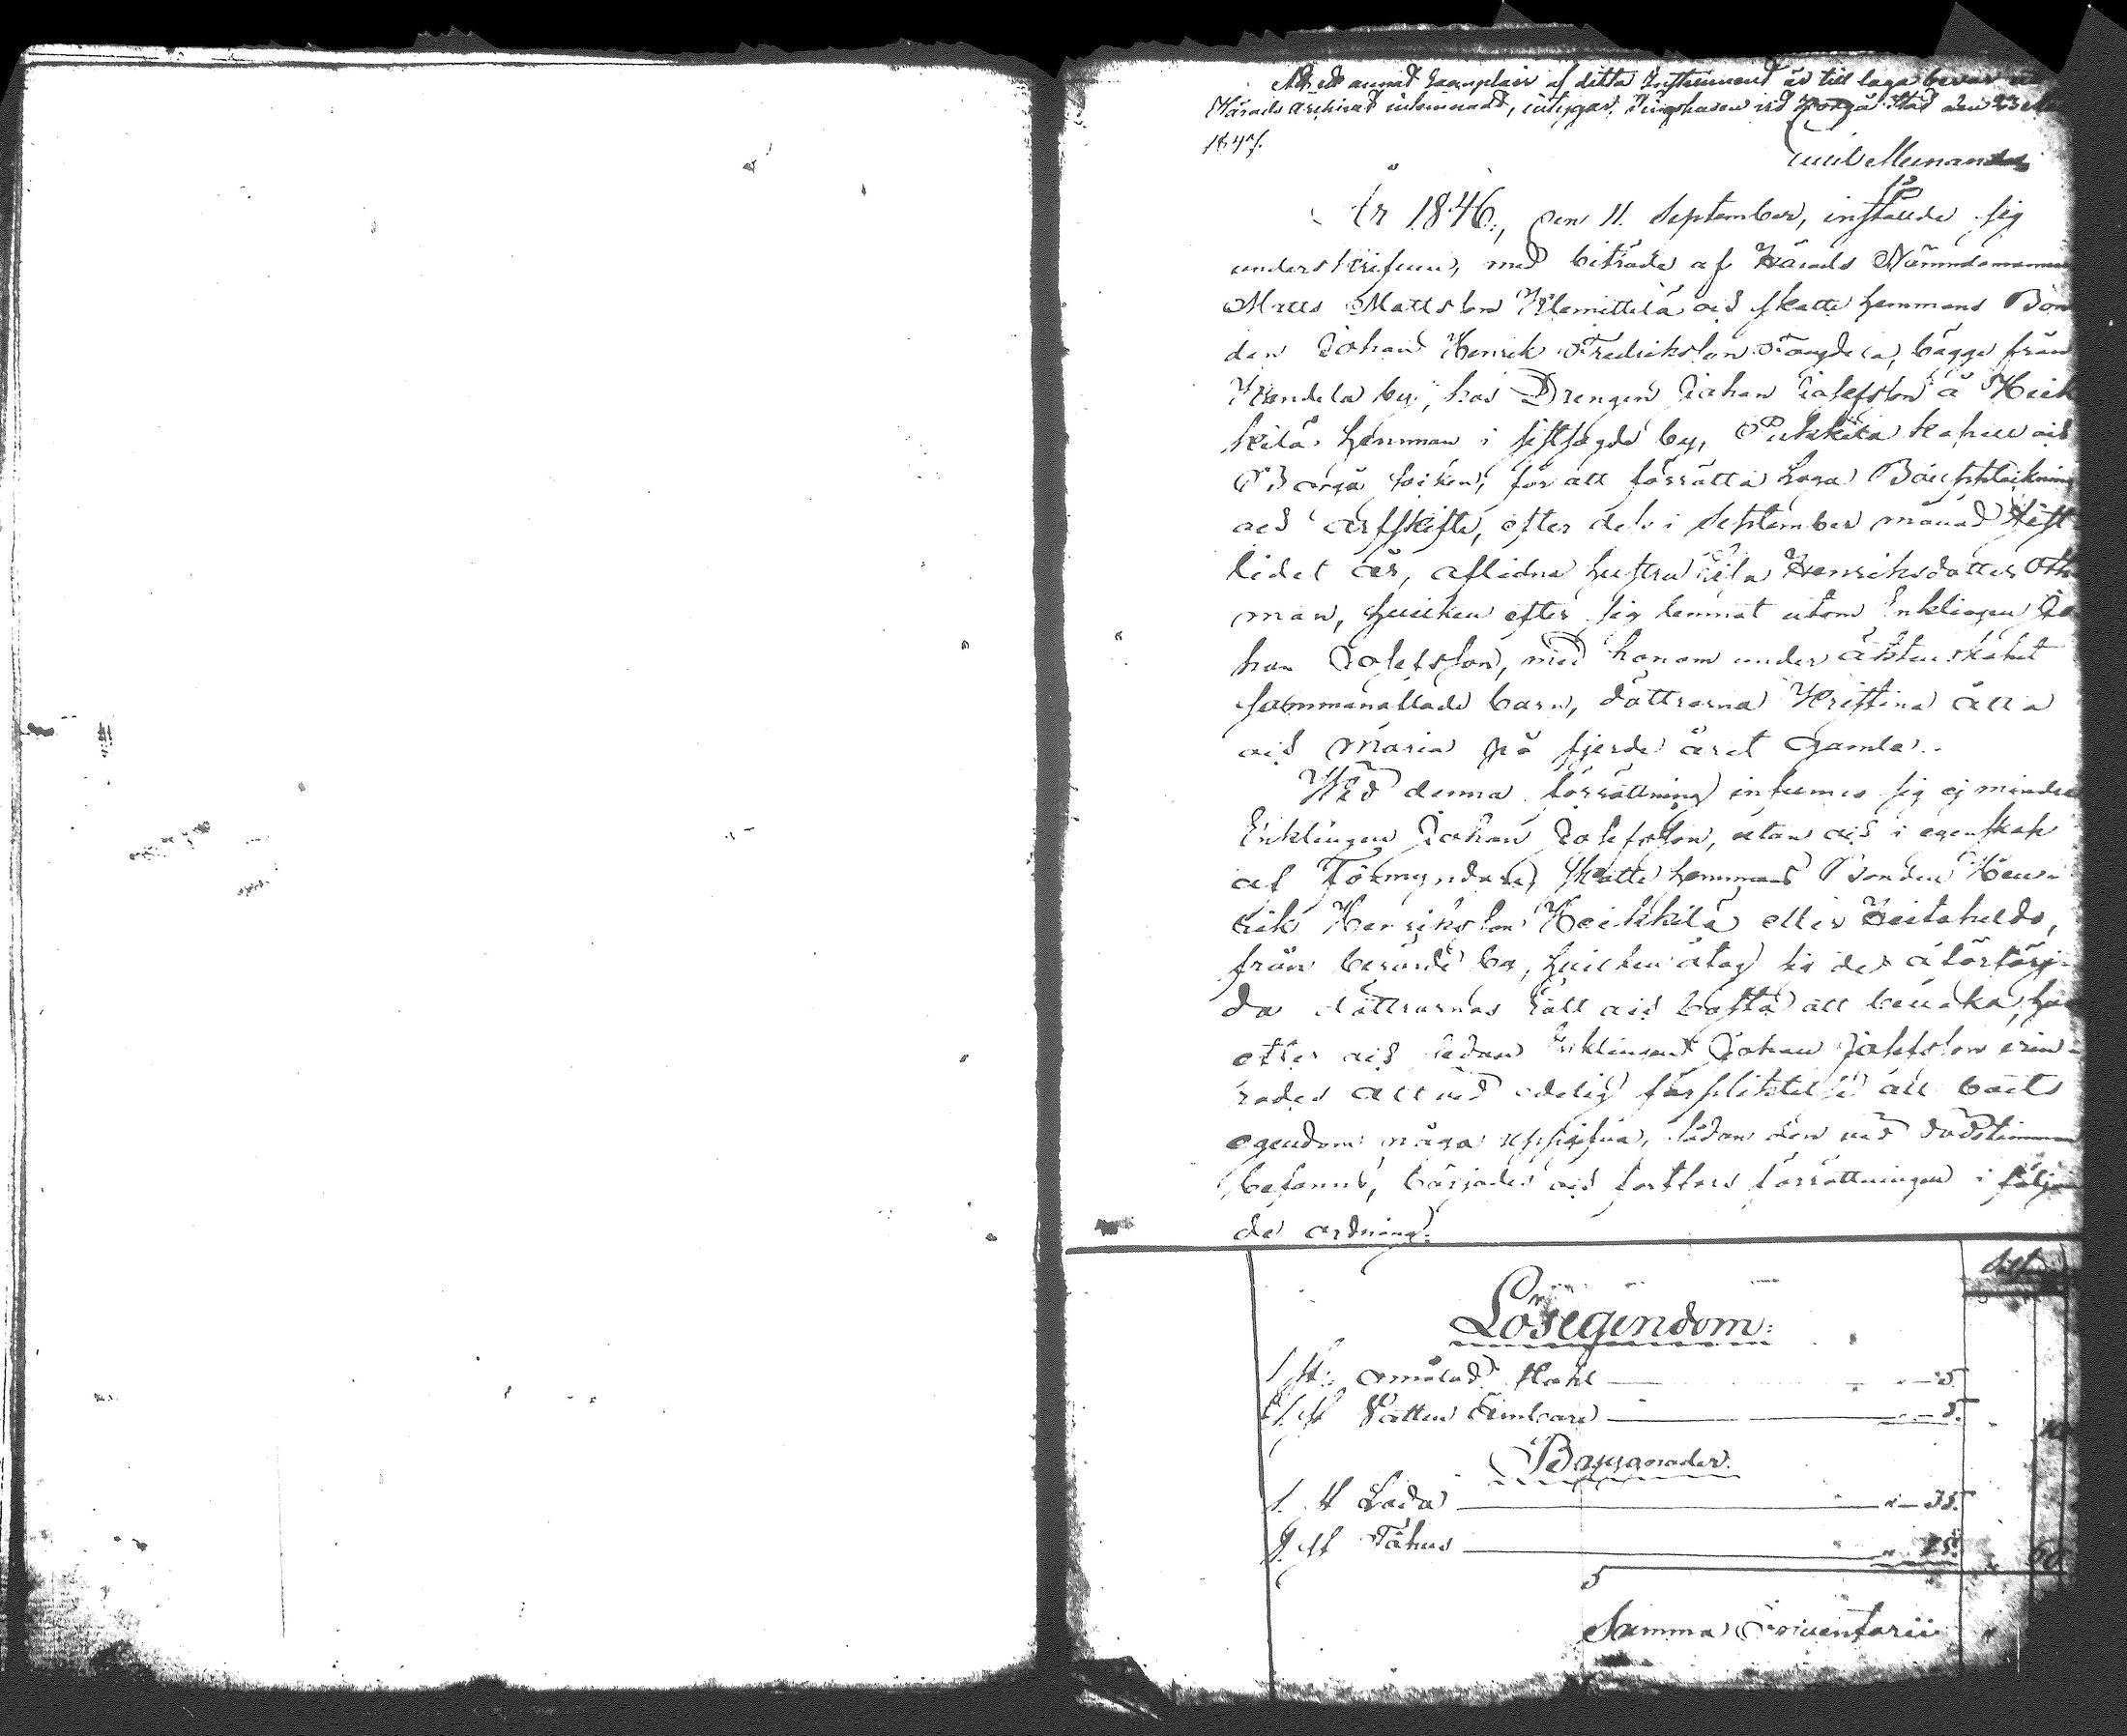 Att ett annat Exemplair af detta Instrument är till laga bevar
Härads Archivet inlemnadt, intygar. Tingshuset vid Borgå Stad den 23
1847.
Emil Meinander
År 1846, den 11. September, instälde sig
underskrifven, med biträde af Härads Nämndemannen
Matts Mattsson Klemettilä och skatte hemmans Bon
den Johan Henrik Fredriksson bägge från
by, hos Drengen Johan Josefsson å Heik
kilä hemman i sistsagde by, Pukkila kapell och
Borgå socken, för att förrätta laga Bouppteckning
och arfskifte, efter dess i September månad sist
lidet år, aflidna hustru Ulla Henriksdotter
man, hvilken efter sig lemnat utom Enklingen Jo
han Josefsson, med honom under äktenskapet
sammanaflade barn, döttrarna Kristina åtta
och Maria på fjerde året gamla.
Wid denna förrättning infunno sig ej mindre
Enklingen Johan Josefsson, utan och i egenskap
af Förmyndare, skatte hemmans Bonden Hen-
rik Henriksson Heikkilä eller
från berörde by, hvilken åtog sig de oförsörj-
da döttrarnas rätt och bästa att bevaka, hva
efter och sedan Enklingen Johan Josefsson erin-
rades att vid edelig förpliktelse all boets
egendom noga uppgifva, sådan den vid dödstimman
befanns, börjades och fortfors förrättningen i följan
de ordning:
Lösegendom:
1 St: omålad Skåhl " — 5.
1 St Vatten Embare " — 5.
Byggnader.
1. St Lada " — 35.
1. St Fähus " 25. " 60
Summa Inventarii "